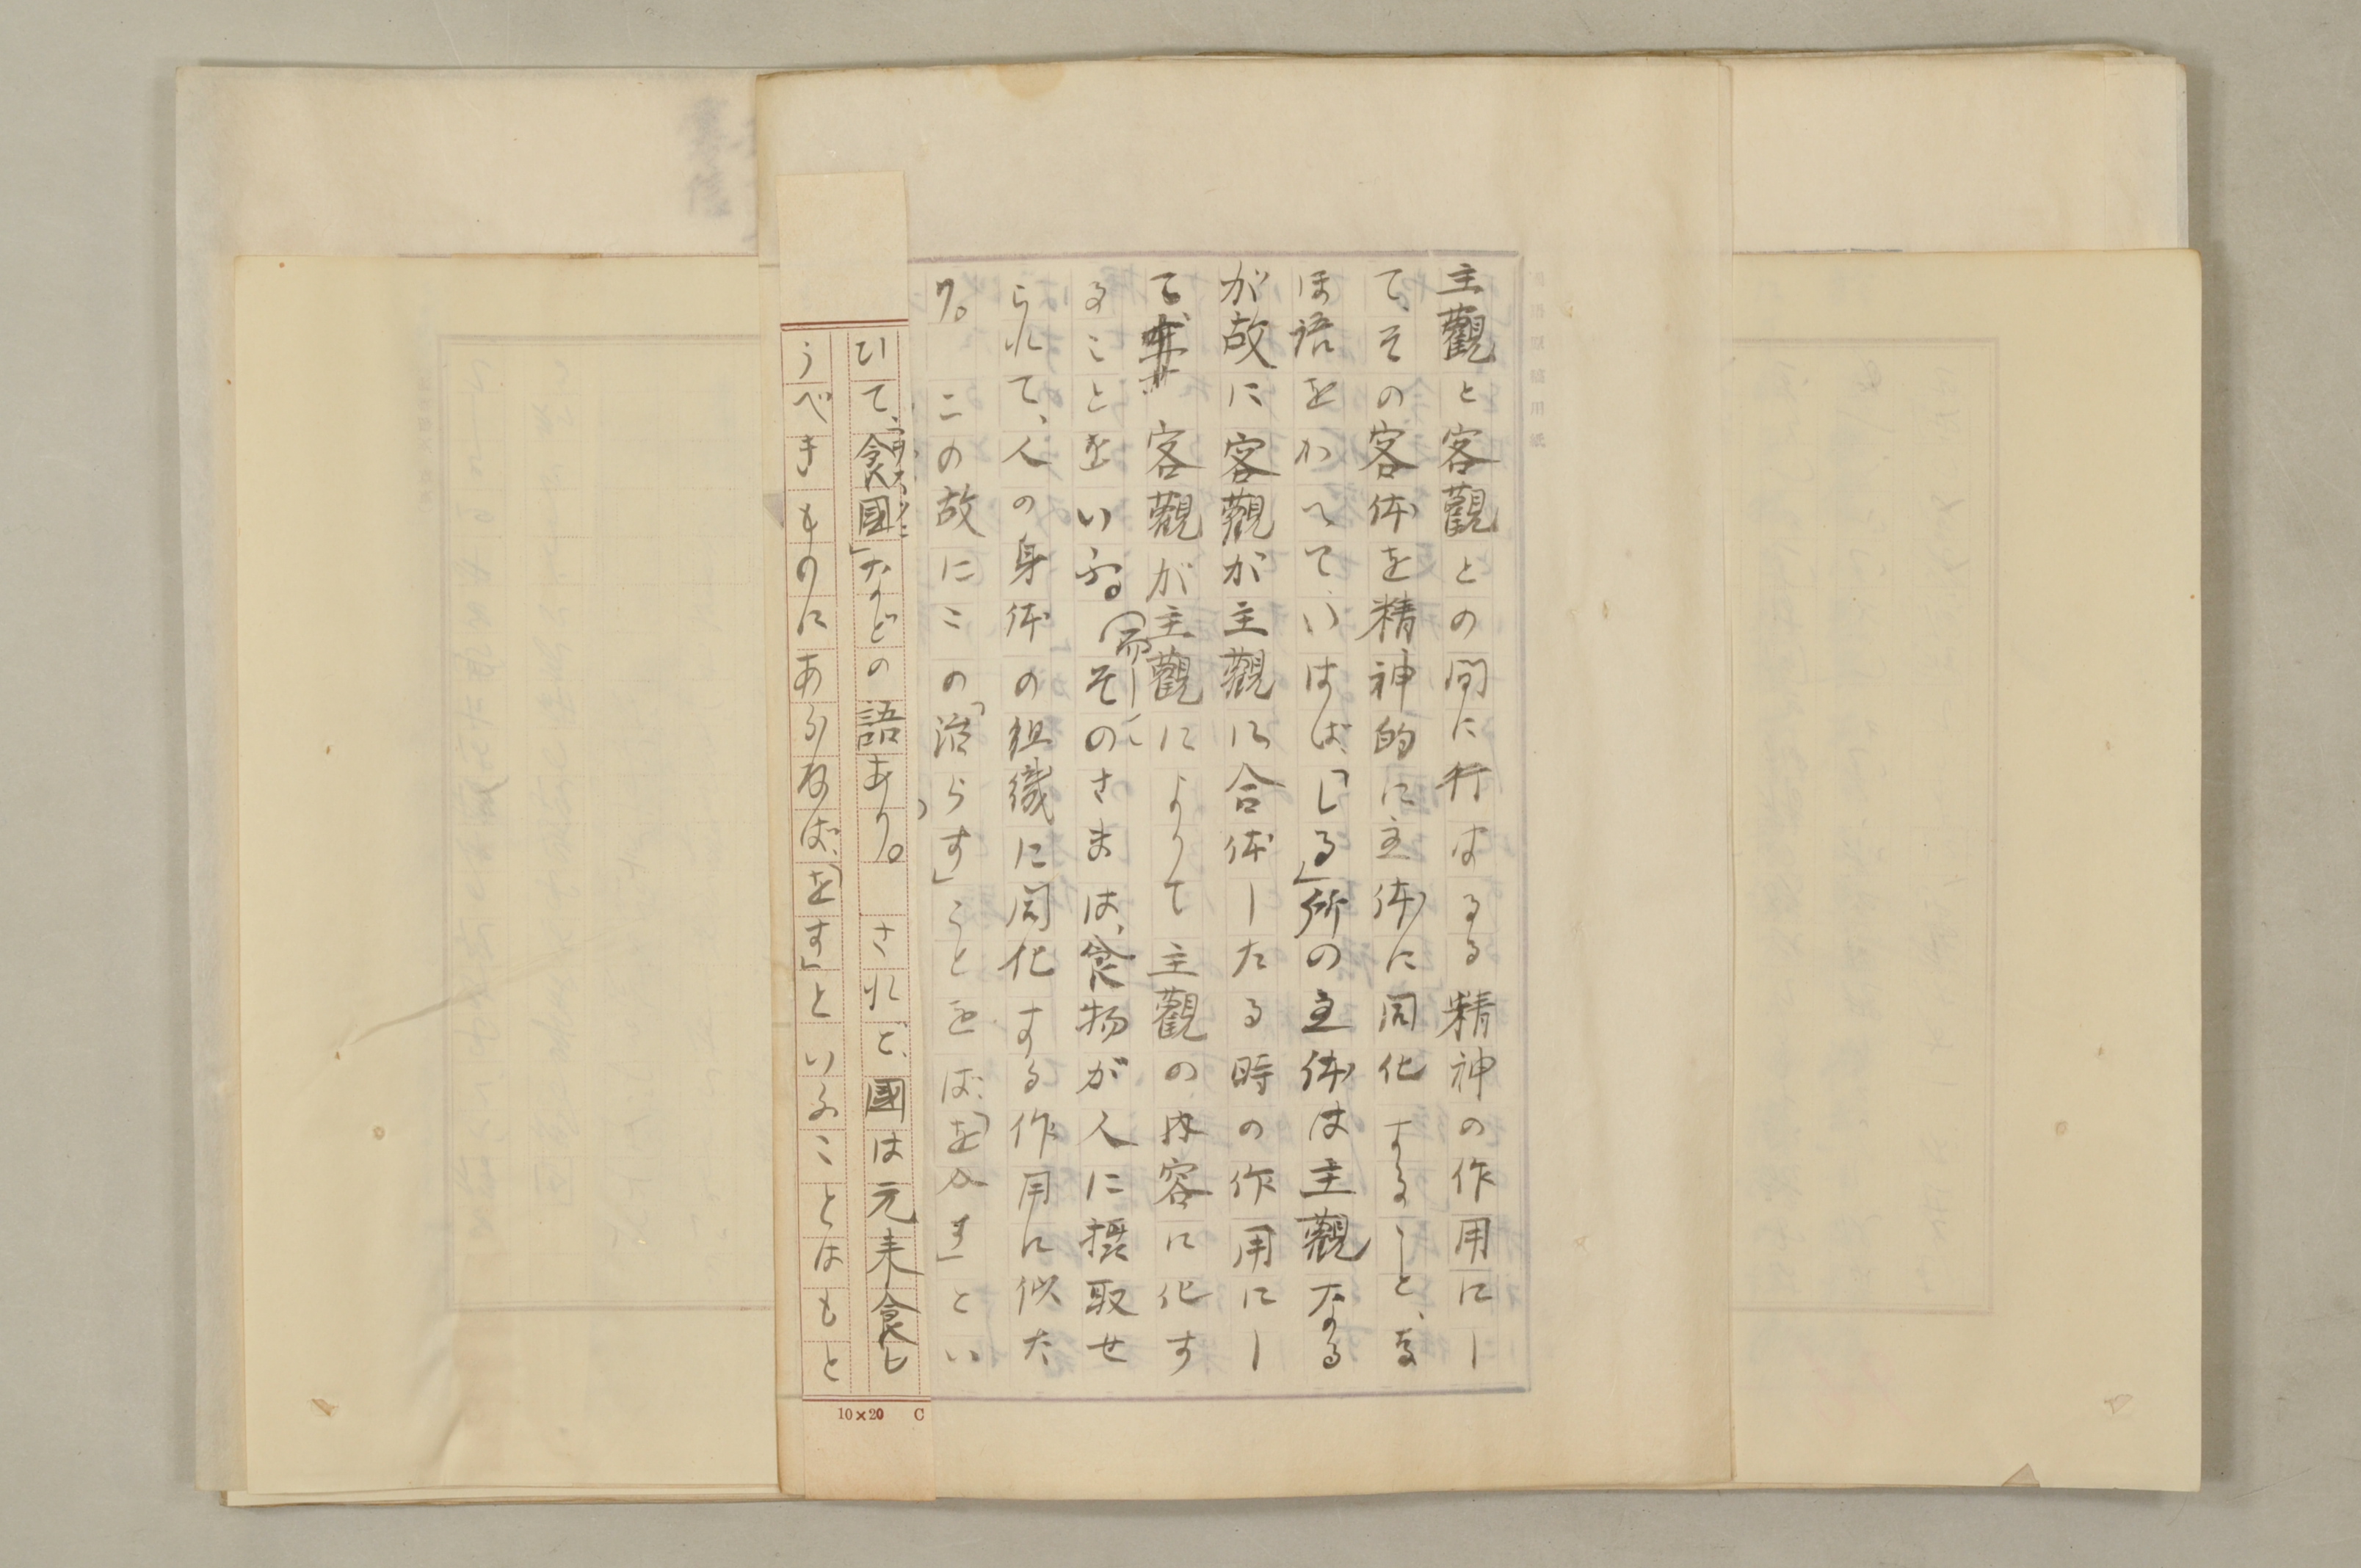 主觀と客觀との間に行はるる精神の作用にし
て、その客体を精神的に主体に同化すること、な
ほ語をかへていはば、「しる」所の主体は主觀なる
が故に客觀が主觀に合体したる時の作用にし
て 客觀が主觀によりて主觀の内容に化す
ることをいふ。而してそのさまは、食物が人に攝取せ
られて、人の身体の組織に同化する作用に似た
り。 この故にこの「治らす」ことをば、「をす」とい
ひて、「食國」などの語あり。 されど、國は元来食し
うべきものにあらねば、「をす」といふことはもと
10×20 C